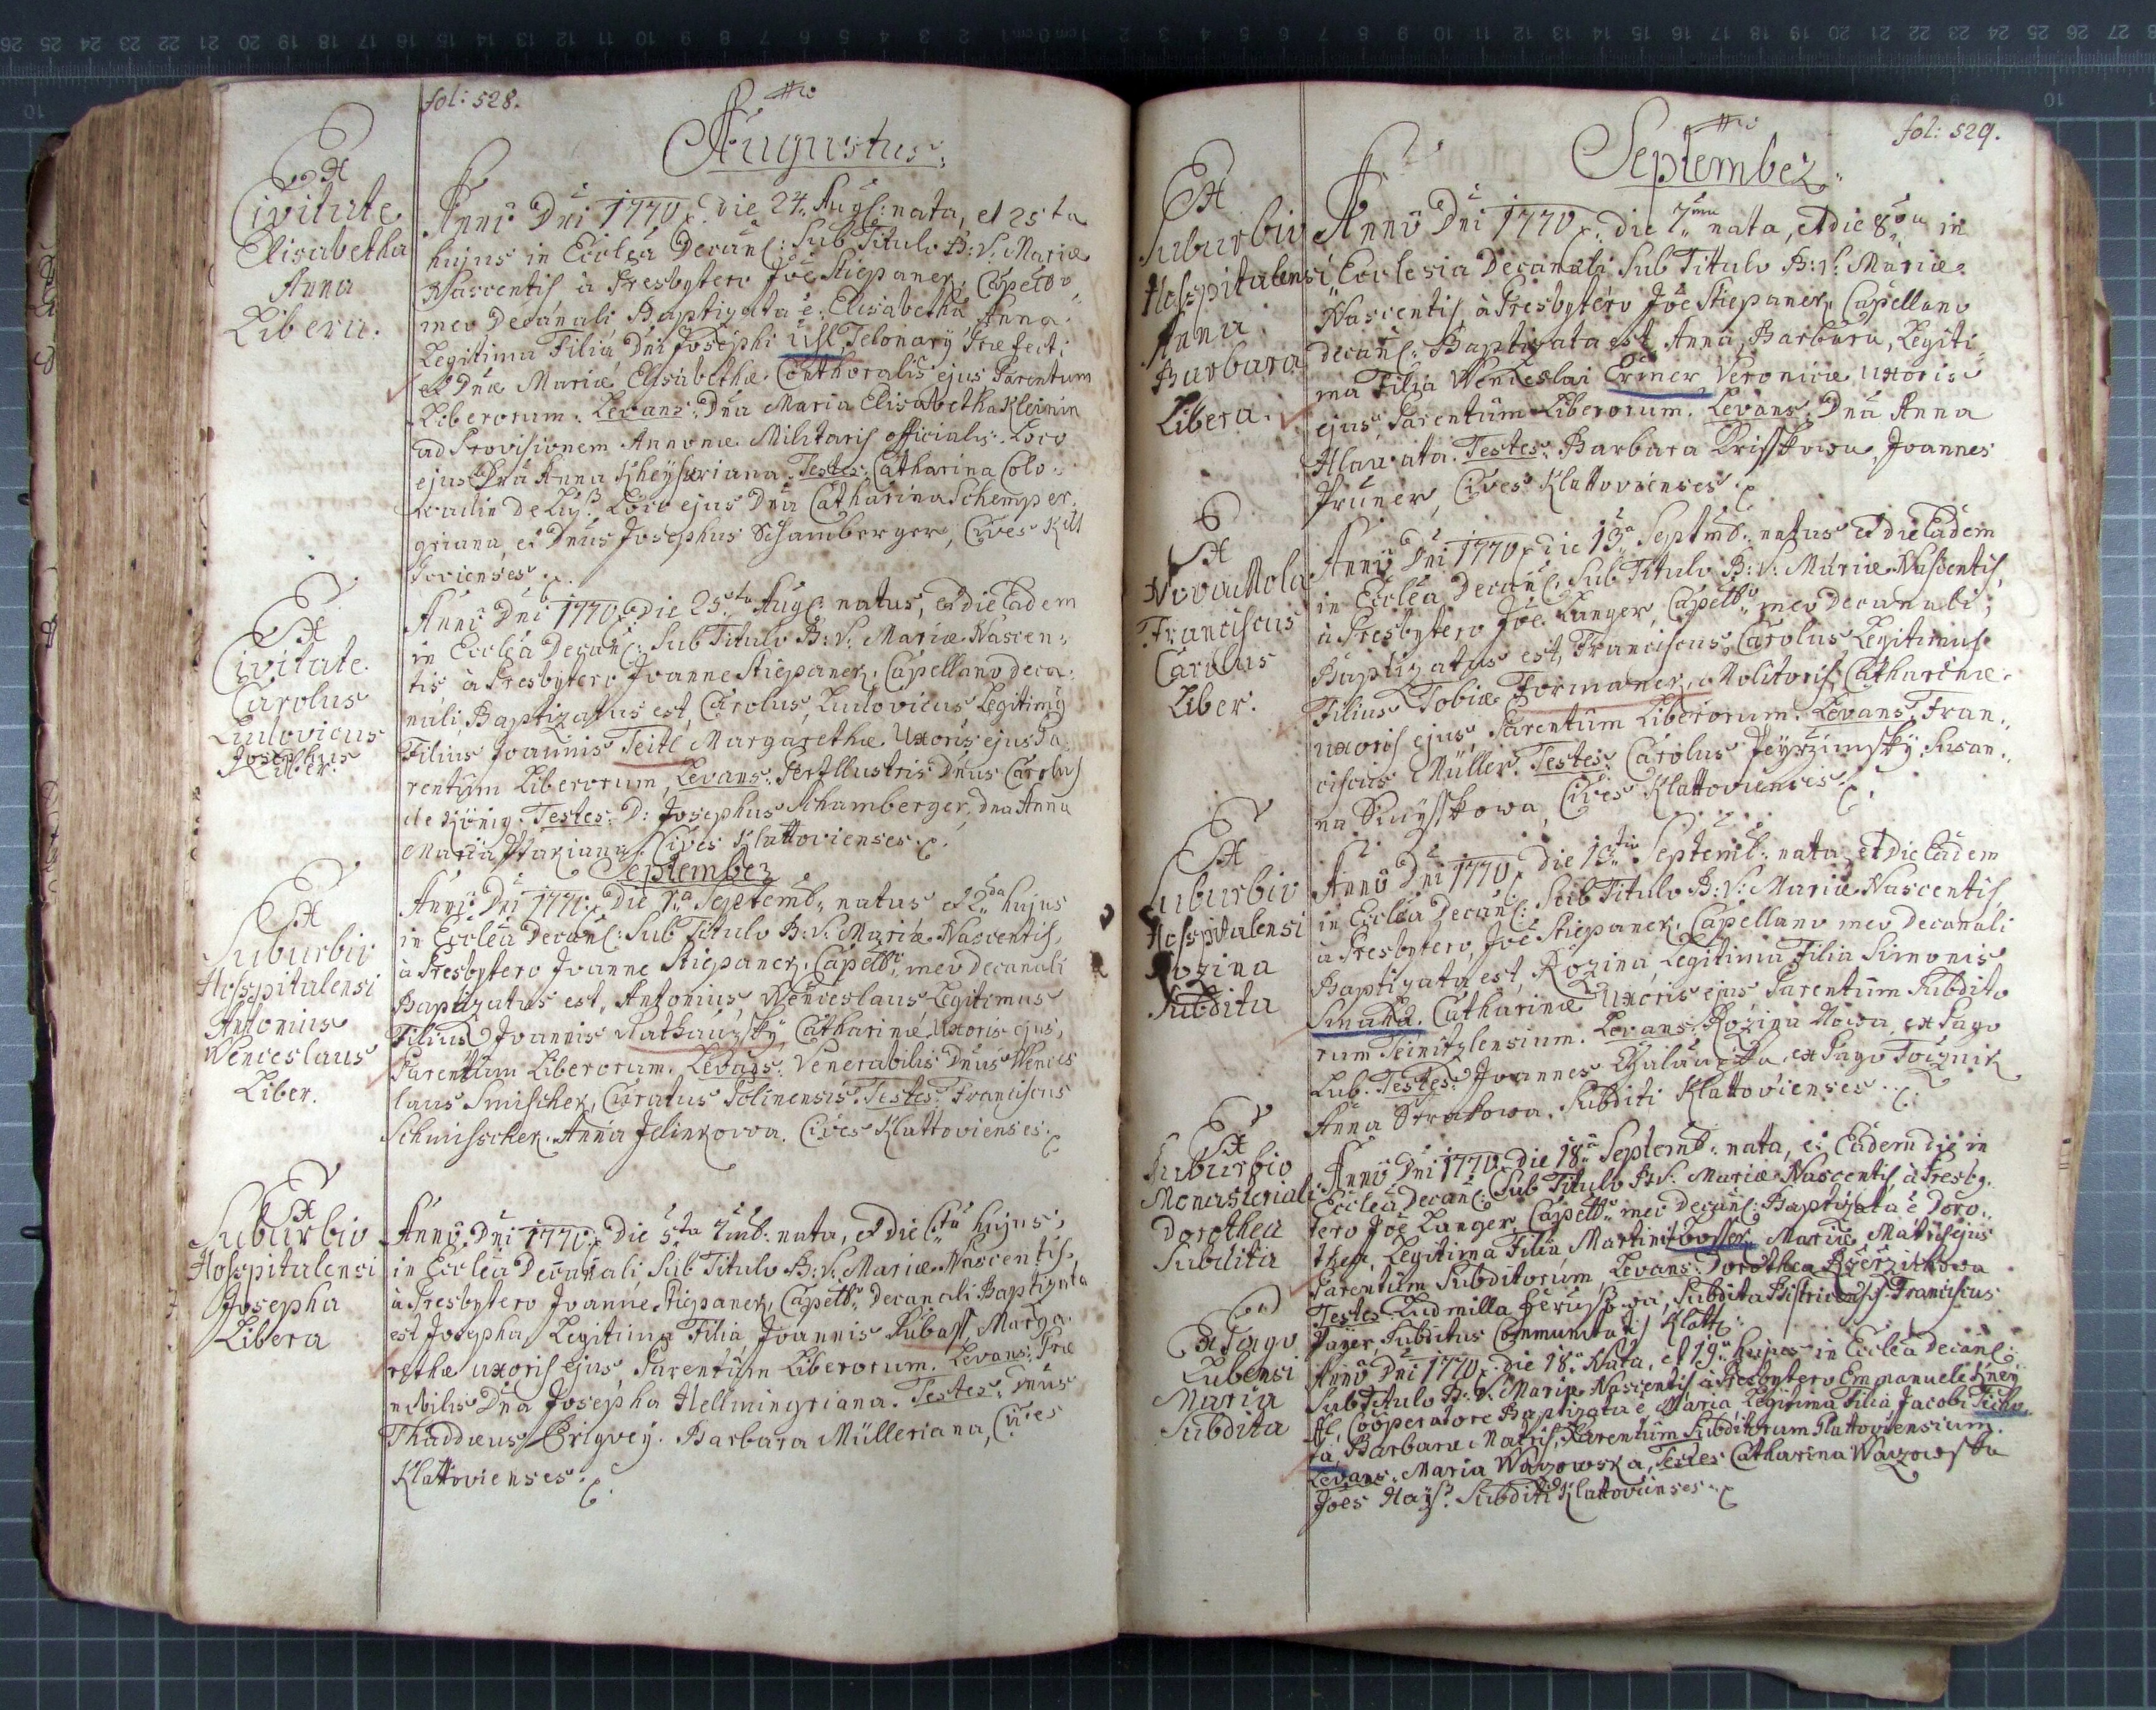 fol: 528.
Augustus.
Ex
Civitate
Elisabetha
Anna
Libera.
Anno Dni 1770. Die 24. Aug: nata, et 25ta
hujus in Ecclea Decan: Sub Titulo B: V: Mariæ
Nascentis à Presbytero Joe Stiepanek, Capello
meo Decanali Baptizata e Elisabetha Anna
Legitima Filia Dni Josephi Telonarÿ Præfecti
et Dnæ Mariæ Elisabethæ Conthoralis ejus Parentum
Liberorum. Levans: Dna Maria Elisabetha Kleinin
ad Provisionem Annonæ Militaris officialis. Loco
ejus Dna Anna Kheyseriana. Testes: Catharina Colo-
Loco ejus Dna Catharina Schemper-
geriana, et Dnus Josephus Schamberger, Cives Klat
tovienses.
Ex
Civitate.
Carolus
Ludovicus
Josephus
Liber.
Anno Dni 1770. Die 25ta Aug: natus, et die Eadem
in Ecclea Decan: Sub Titulo B: V: Mariæ Nascen-
tis à Presbytero Joanne Stiepanek. Capellano deca-
nali, Baptizatus est, Carolus, Ludovicus Legitimq
Filius Joannis Teitl Margarethæ Uxoris ejus Pa-
rentum Liberorum, Levans: Perillustris Dnus Carolus
de König. Testes: D: Josephus Schamberger, Dna Anna
Maria Cives Klattovienses.
September
Ex
Suburbio
Hosspitalensi
Antonius
Wenceslaus
Liber.
Anno Dni 1770. Die 1a Septemb: natus et 2da hujus
in Ecclea Decan: Sub Titulo B: V: Mariæ Nascentis,
à Presbytero Joanne Stiepanek, Capello meo Decanali
Baptizatus est, Antonius, Wenceslaus Legitimus
Filius Joannis Catharinæ Uxoris ejus,
Parentum Liberorum. Levans: Venerabilis Dnus Wences
laus Smischek, Curatus Polinensis. Testes: Franciscus
Schmisschek. Anna Jelinkowa. Cives Klattovienses.
Ex
Suburbio
Hosspitalensi
Josepha
Libera
Anno Dni 1770. Die 5ta 7mb: nata, et die 6ta hujus,
in Ecclea Decanali Sub Titulo B: V: Mariæ Nascentis,
à Presbytero Joanne Stiepanek, Capello Decanali Baptizata
est Josepha, Legitima Filia Joannis Kubass, Marga-
rethæ uxoris ejus, Parentum Liberorum. Levans: Præ
nobilis Dna Josepha Hellmingriana. Testes: Dnus
Thaddæus Barbara Mülleriana, Cives
Klattovienses.
fol: 529.
September.
Ex
Suburbio
Hosspitalensi
Anna
Barbara
Libera.
Anno Dni 1770. Die 7ma nata, et die 8va in
Ecclesia Decanali Sub Titulo B: V: Mariæ
Nascentis à Presbytero Joe Stiepanek, Capellano
decan: Baptizata est Anna, Barbara, Legiti-
ma Filia Wenceslai Ermer Veronicæ uxoris
ejus, Parentum Liberorum. Levans: Dna Anna
Hlawata. Testes: Barbara Krisskowa, Joannes
Pruner, Cives Klattovienses
Ex
Nova Mola
Franciscus
Carolus
Liber.
Anno Dni 1770. die 13a Septmb: natus et die Eadem
in Ecclea Decan: Sub Titulo B: V: Mariæ Nascentis,
à Presbytero Joe Langer, Capello meo Decanali,
Baptizatus est, Franciscus, Carolus Legitimus
Filius Tobiæ Formanek, Molitoris, Catharinæ
uxoris ejus, Parentum Liberorum. Levans: Fran-
ciscus Müller. Testes: Carolus Susan-
na Cives Klattoviensis.
Ex
Suburbio
Hosspitalensi
Rozina
Subdita
Anno Dni 1770. Die 13tia Septemb: nata, et Die Eadem
in Ecclea Decan: Sub Titulo B: V: Mariæ Nascentis,
à Presbytero, Joe Stiepanek, Capellano meo Decanali
Baptizata est, Rozina, Legitima Filia Simonis
Smaha. Catharinæ Uxoris ejus, Parentum Subdito
rum Teinitzlensium. Levans: Rozina Nowa, ex Pago
Lub. Testes: Joannes Chalaupka, ex Pago Toiznik
Anna Strakowa. Subditi Klattovienses.
Ex
Suburbio
Monasteriali
Dorothea
Subdita
Anno Dni 1770. Die 18a Septemb: nata, et Eadem die in
Ecclea Decan: Sub Titulo B: V: Mariæ Nascentis, à Presby-
tero Joe Langer, Capello meo Decan: Baptizata e Doro-
thea, Legitima Filia Martini Mariæ Matris ejus
Parentum Subditorum, Levans: Dorothea
Testes: Ludmilla Subdita Franciscus
Payer, Subditus Communitatis Klatt:
Ex Pago
Lubensi
Maria
Subdita
Anno Dni 1770. die 18a Nata, et 19a hujus in Ecclea Decan:
Sub Titulo B: V: Mariæ Nascentis à Presbytero Emmanuele
Cooperatore Baptizata e Maria Legitima Filia Jacobi
Barbaræ Matris, Parentum Subditorum Klattoviensium.
Levans: Maria Wazowska, Testes Catharina Wazowska
Joes Subditi Klattovienses.